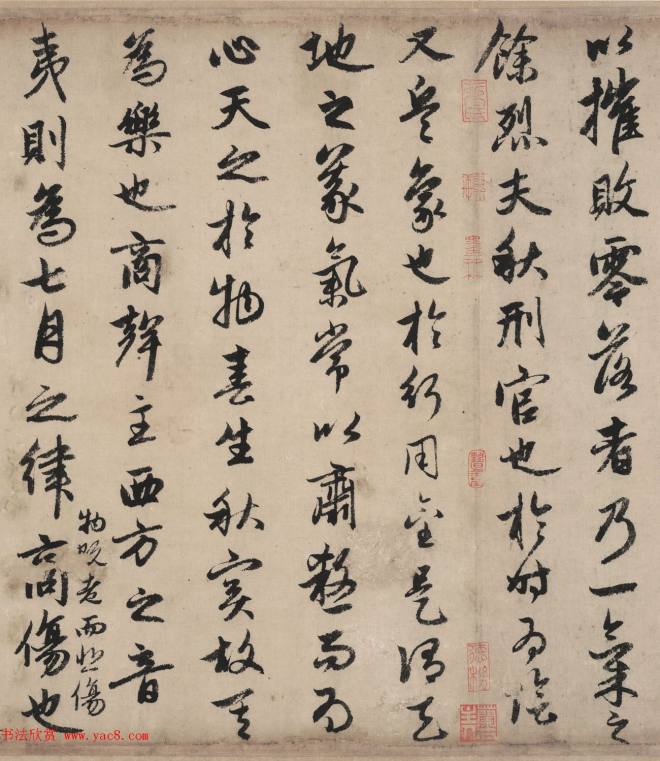 以摧敗零落者乃一氣之
餘烈夫秋刑官也於時為陰
又兵象也於行用金是謂天
地之義氣常以肅殺而為
心天之於物春生秋實故其
為樂也商聲主西方之音
物既老而悲傷
夷則為七月之律商傷也
书法欣赏 www.yac8.com